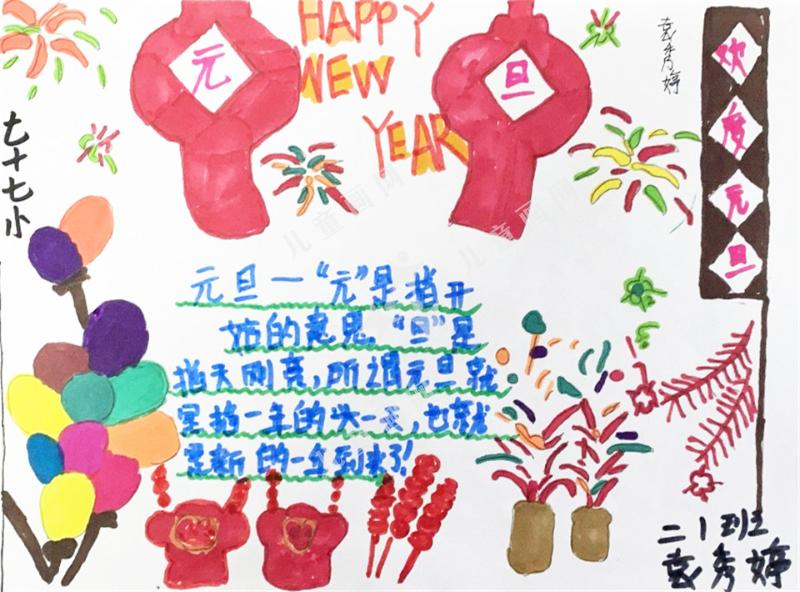 HAPPY
NEW
YEAR
元
旦
袁秀婷
欢度元旦
七十七小
元旦一“元”是指开
始的意思.“旦”是
指天刚亮,所谓元旦就
是指一年的头一天,也就
是新的一年到来了!
二1班
袁秀婷
儿童画网
儿童画网